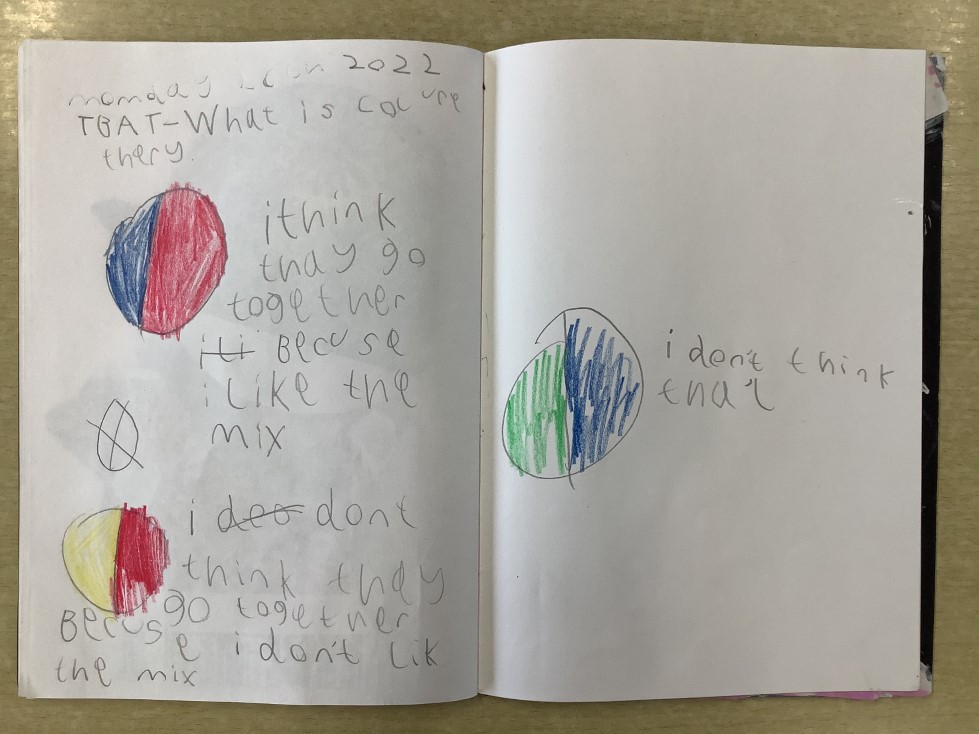 momday 2022
TBAT-What is coloure
thery.
i think
thay go
together
iti Becuse
i like the
mix
i deo dont
think thay
go together
Becuse i don't Lik
the mix
i don't think
that